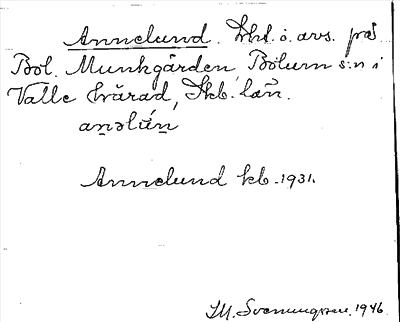 Annelund. Lht. o. avs. på
Bol. Munkgården Bolum s:n i
Valle härad, Skb. län.
anəlún
Annelund kb. 1931.
M. Svenungsson. 1946.